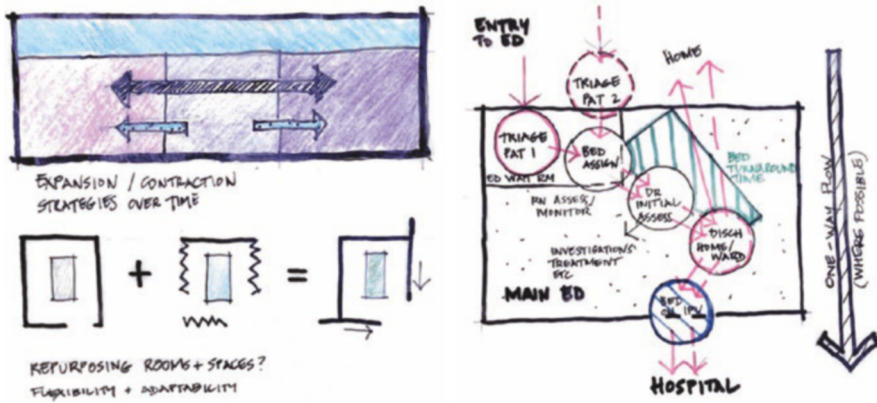 EXPANSION / CONTRACTION
STRATEGIES OVER TIME
REPURPOSING ROOMS + SPACES?
FLEXIBILITY + ADAPTABILITY
ENTRY
TO ED
HOME
TRIAGE
PAT 2
TRIAGE
PAT 1
BED
ASSIGN
ED WAIT RM
BED
TURNAROUND
TIME
RN ASSESS/
MONITOR
DR
INITIAL
ASSESS
DISCH
HOME/
WARD
INVESTIGATIONS
TREATMENT
ETC
MAIN ED
BED
HOSPITAL
ONE-WAY FLOW
(WHERE POSSIBLE)